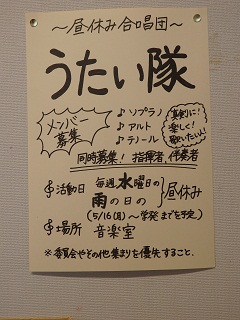 ～昼休み合唱団～
うたい隊
メンバー
募集
♪ソプラノ
♪アルト
♪テノール
真剣に!
楽しく!
歌いたい人!
同時募集! 指揮者、伴奏者
活動日 毎週水曜日の
雨の日の
昼休み
(5/16(月)～学発までを予定)
場所 音楽室
※委員会やその他集まりを優先すること.